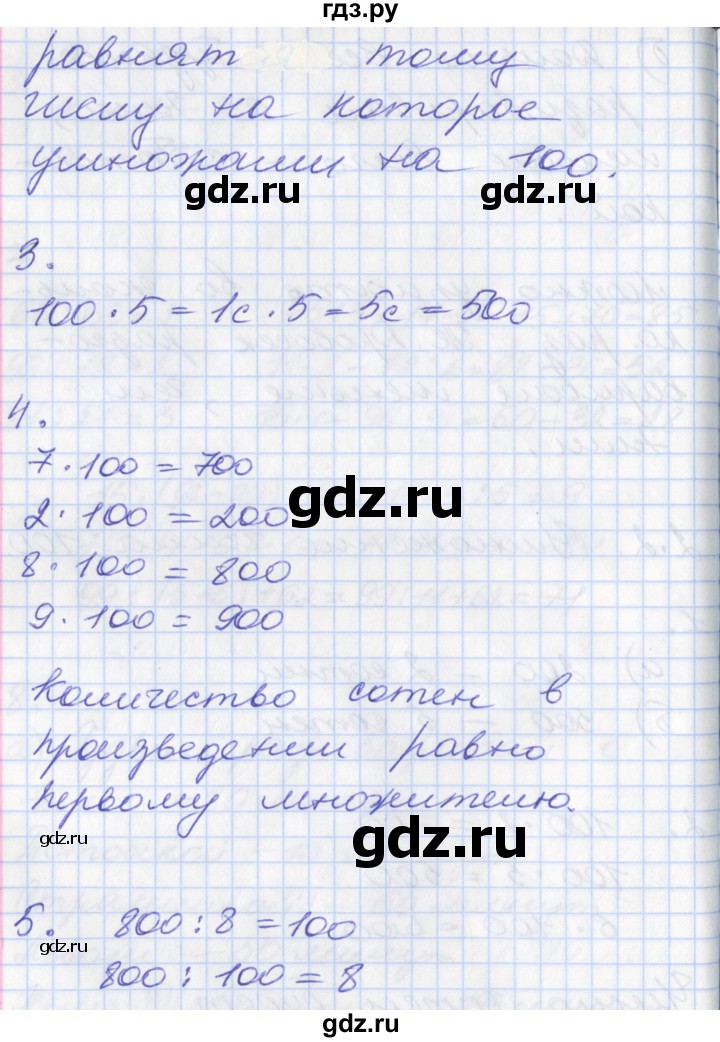 гдз.ру
равнят тому
числу на которое
умножали на 100.
gdz.ru gdz.ru
3.
100 · 5 = 1с · 5 = 5с = 500
4.
7 · 100 = 700
gdz.ru
2 · 100 = 200
8 · 100 = 800
9 · 100 = 900
Количество сотен в
произведении равно
первому множителю.
gdz.ru gdz.ru
5. 800 : 8 = 100
gdz.ru
800 : 100 = 8
gdz.ru